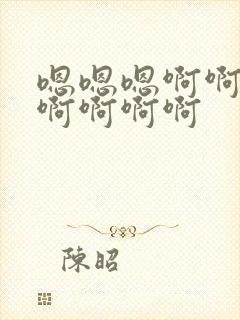 嗯嗯嗯啊啊
啊啊啊啊
陳昭